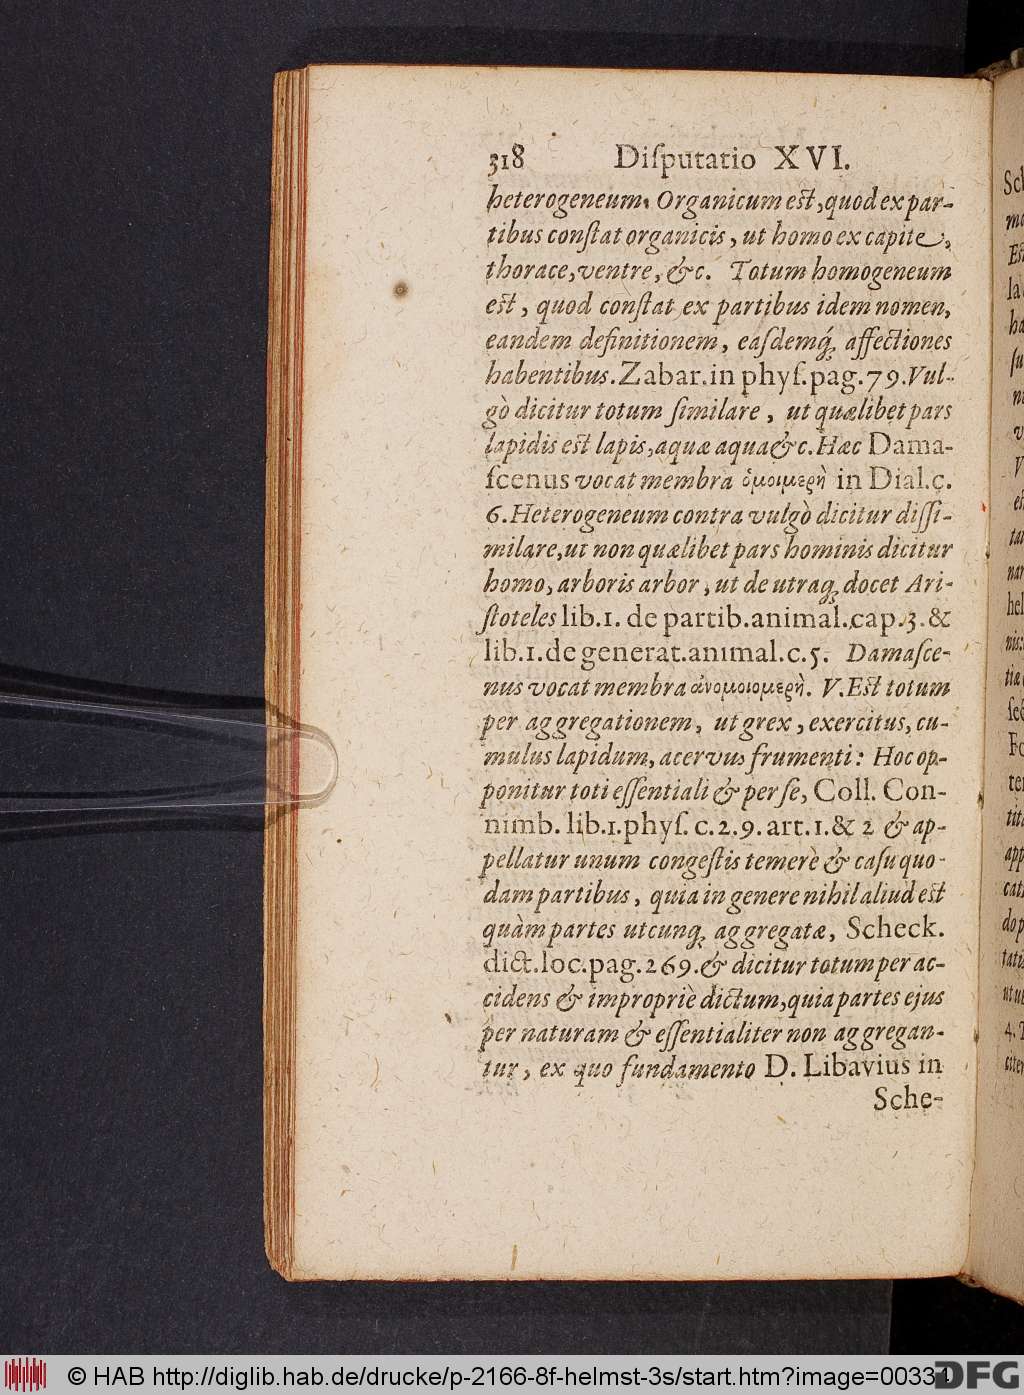 318 Diſputatio XVI.
heterogeneum. Organicum eſt, quod ex par-
tibus conſtat organicis, ut homo ex capite,
thorace, ventre, &c. Totum homogeneum
eſt, quod conſtat ex partibus idem nomen,
eandem definitionem, eaſdemq́; affectiones
habentibus. Zabar. in phyſ. pag. 79. Vul-
gò dicitur totum ſimilare, ut quælibet pars
lapidis eſt lapis, aquæ aqua &c. Hæc Dama-
ſcenus vocat membra ὁμοιμερῆ in Dial. c.
6. Heterogeneum contra vulgò dicitur diſſi-
milare, ut non quælibet pars hominis dicitur
homo, arboris arbor, ut de utraq; docet Ari-
ſtoteles lib. 1. de partib. animal. cap. 3. &
lib. 1. de generat. animal. c. 5. Damaſce-
nus vocat membra ἀνομοιομερῆ. V. Eſt totum
per aggregationem, ut grex, exercitus, cu-
mulus lapidum, acervus frumenti: Hoc op-
ponitur toti eſſentiali & per ſe, Coll. Con-
nimb. lib. 1. phyſ. c. 2. 9. art. 1. & 2 & ap-
pellatur unum congeſtis temerè & caſu quo-
dam partibus, quia in genere nihil aliud eſt
quàm partes utcunq; aggregatæ, Scheck.
dict. loc. pag. 269. & dicitur totum per ac-
cidens & impropriè dictum, quia partes ejus
per naturam & eſſentialiter non aggregan-
tur, ex quo fundamento D. Libavius in
Sche-
© HAB http://diglib.hab.de/drucke/p-2166-8f-helmst-3s/start.htm?image=00334
DFG